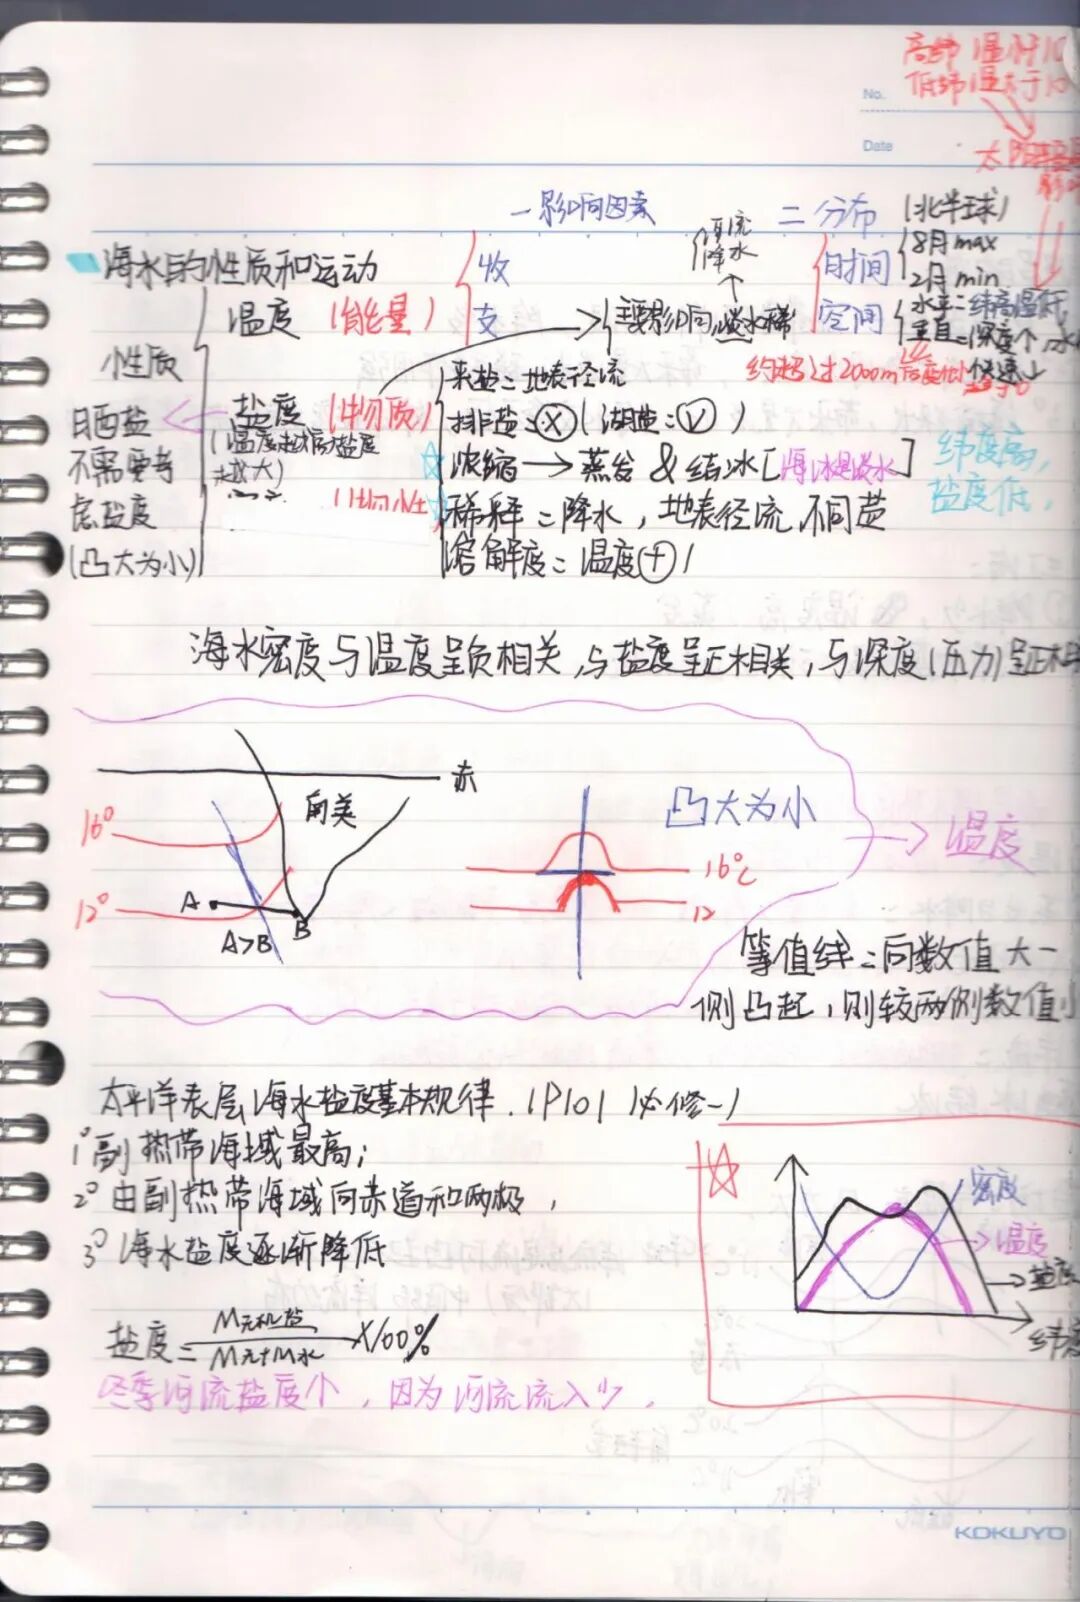 高纬 温小于10
低纬 温大于10
No.
Date
一影响因素
二 分布
(北半球)
径流
降水
海水的性质和运动
收
时间
8月max
2月min
温度 (能量)
支
主要影响:淡水稀
空间
水平:纬高温低
垂直:深度个,水
性质
来盐:地表径流
约超过2000m
盐度 (物质)
排盐:X (湖盐:√)
日晒盐
(温度越高,盐度
浓缩→蒸发 & 结冰[海冰是淡水]
纬度高,
不需要考
越大)
盐度低,
虑盐度
稀释:降水,地表径流
(凸大为小)
溶解度:温度(+)
海水密度与温度呈负相关,与盐度呈正相关,与深度(压力)呈正相
赤
南美
凸大为小
16°
温度
16℃
12°
A
B
12
A>B
等值线:向数值大一
侧凸起,则较两侧数值小
太平洋表层海水盐度基本规律.(P101 必修一)
1° 副热带海域最高;
2° 由副热带海域向赤道和两极,
3° 海水盐度逐渐降低
密度
温度
盐度
纬度
盐度= M无机盐 / M无+M水 ×100%
冬季河流盐度个,因为河流流入少.
KOKUYO